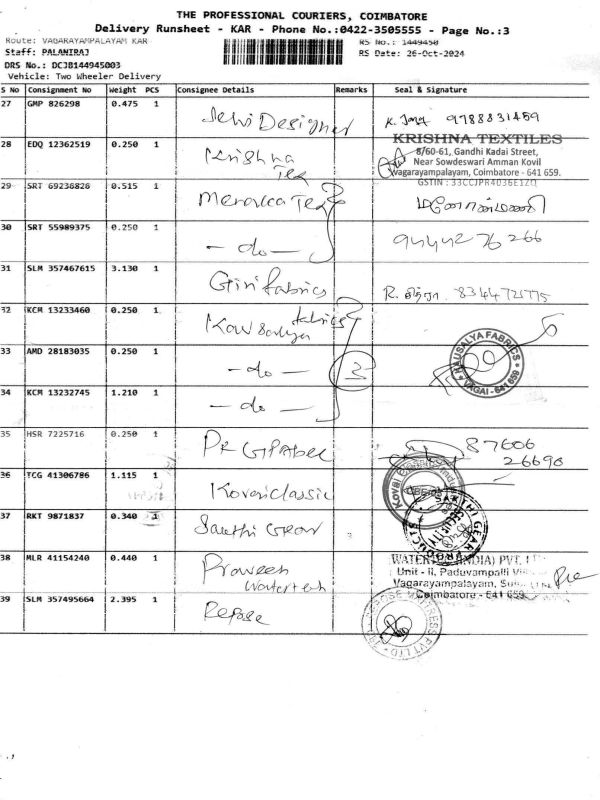 THE PROFESSIONAL COURIERS, COIMBATORE
Delivery Runsheet - KAR - Phone No.:0422-3505555 - Page No.:3
Route: VAGARAYAMPALAYAM KAR
RS No.: 1449450
Staff: PALANIRAJ
RS Date: 26-Oct-2024
DRS No.: DCJB144945003
Vehicle: Two Wheeler Delivery
S No Consignment No Weight PCS Consignee Details Remarks Seal & Signature
27 GMP 826298 0.475 1 Designer 9788831459
28 EDQ 12362519 0.250 1 Krishna Tex
KRISHNA TEXTILES
8/60-61, Gandhi Kadai Street,
Near Sowdeswari Amman Kovil
Vagarayampalayam, Coimbatore - 641 659.
GSTIN : 33CCJPR4036E1ZQ
29 SRT 69236826 0.515 1 Tex
30 SRT 55989375 0.250 1 - do - 94442 76 266
31 SLM 357467615 3.130 1 Giri fabrics R. சித்ரா. 83447 72775
32 KCM 13233460 0.250 1 Kowsalya fabrics
33 AMD 28183035 0.250 1 - do - 3
KAUSALYA FABRICS
VAGAI - 641 659
34 KCM 13232745 1.210 1 - do -
35 HSR 7225716 0.250 1 87606 26690
36 TCG 41306786 1.115 1 Kovai classic
37 RKT 9871837 0.340 1 Sakthi Gear
SAKTHI GEAR PRODUCTS
38 MLR 41154240 0.440 1 Praveen Watertech
(INDIA) PVT. LTD
Unit - II, Paduvampalli
Vagarayampalayam,
Coimbatore - 641 659
39 SLM 357495664 2.395 1 Repose
REPOSE MATTRESS PVT LTD